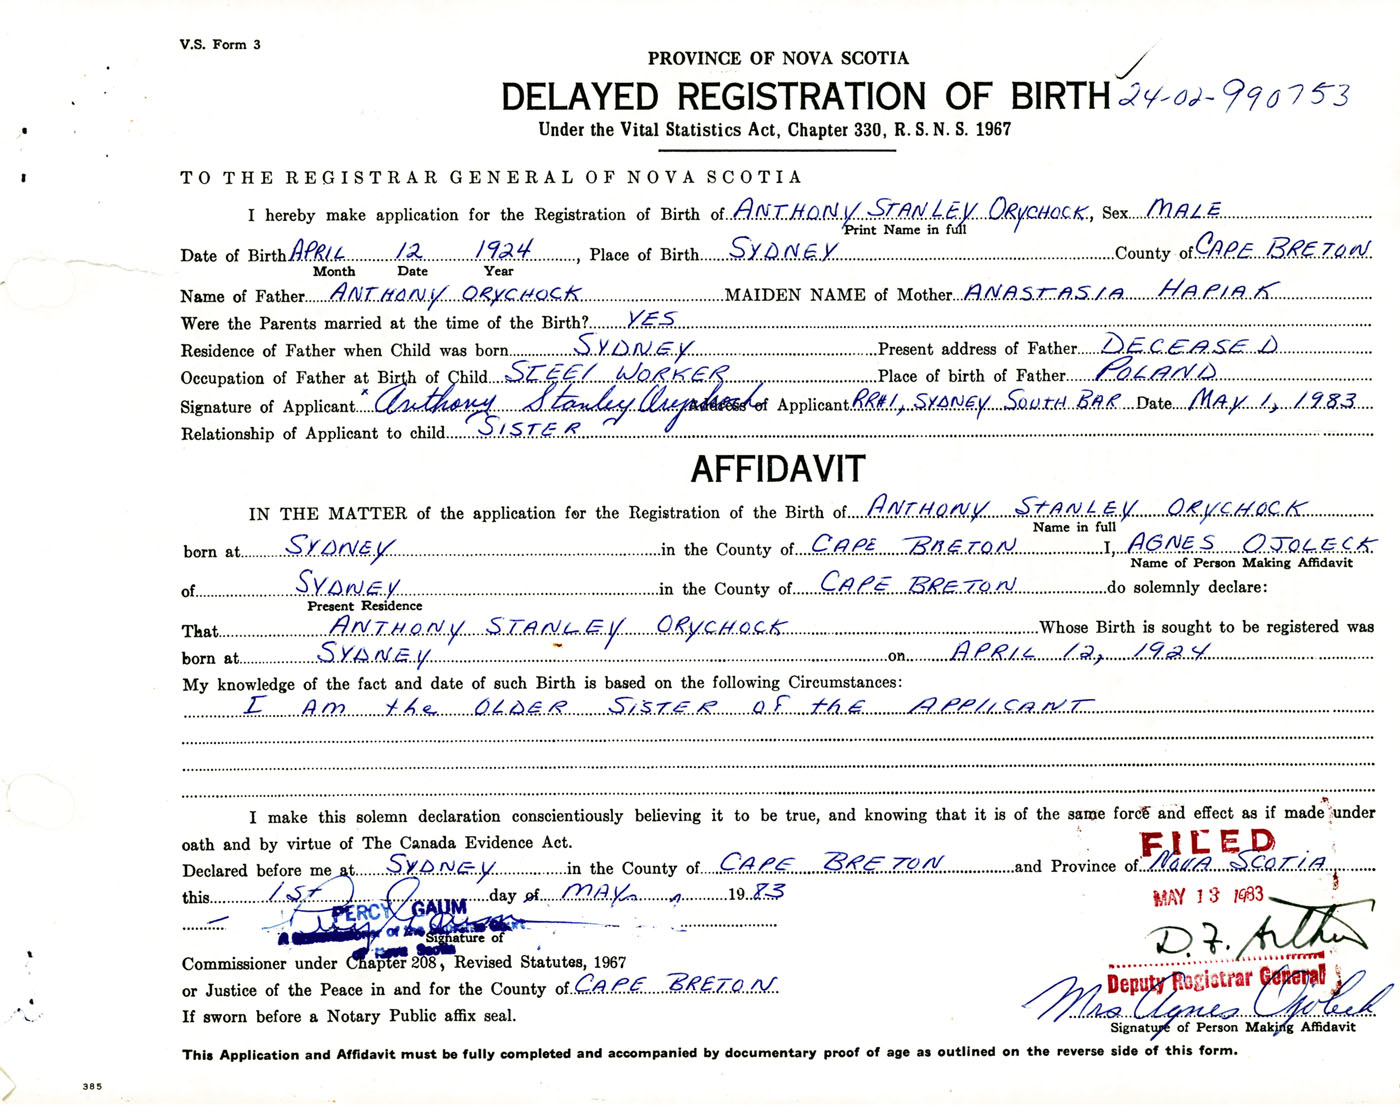 V.S. Form 3
PROVINCE OF NOVA SCOTIA
DELAYED REGISTRATION OF BIRTH 24-02-990753
Under the Vital Statistics Act, Chapter 330, R.S.N.S. 1967
TO THE REGISTRAR GENERAL OF NOVA SCOTIA
I hereby make application for the Registration of Birth of ANTHONY STANLEY ORYCHOCK, Sex MALE
Print Name in full
Date of Birth APRIL 12 1924, Place of Birth SYDNEY County of CAPE BRETON
Month Date Year
Name of Father ANTHONY ORYCHOCK MAIDEN NAME of Mother ANASTASIA HAPIAK
Were the Parents married at the time of the Birth? YES
Residence of Father when Child was born SYDNEY Present address of Father DECEASED
Occupation of Father at Birth of Child STEEl WORKER Place of birth of Father POLAND
Signature of Applicant x Anthony Stanley Orychock Address of Applicant RR#1, SYDNEY SOUTH BAR Date MAY 1, 1983
Relationship of Applicant to child SISTER
AFFIDAVIT
IN THE MATTER of the application for the Registration of the Birth of ANTHONY STANLEY ORYCHOCK
Name in full
born at SYDNEY in the County of CAPE BRETON I, AGNES OJOLECK
Name of Person Making Affidavit
of SYDNEY in the County of CAPE BRETON do solemnly declare:
Present Residence
That ANTHONY STANLEY ORYCHOCK Whose Birth is sought to be registered was
born at SYDNEY on APRIL 12, 1924
My knowledge of the fact and date of such Birth is based on the following Circumstances:
I AM the OLDER SISTER OF the APPlICANT
I make this solemn declaration conscientiously believing it to be true, and knowing that it is of the same force and effect as if made under
oath and by virtue of The Canada Evidence Act.
FILED
Declared before me at SYDNEY in the County of CAPE BRETON and Province of NOVA SCOTIA
this 1ST day of MAY 1983
MAY 13 1983
PERCY GAUM
A Commissioner of the Supreme Court
of Nova Scotia
Signature of
D. F. Arthur
Commissioner under Chapter 208, Revised Statutes, 1967
Deputy Registrar General
or Justice of the Peace in and for the County of CAPE BRETON
Mrs Agnes Ojoleck
If sworn before a Notary Public affix seal.
Signature of Person Making Affidavit
This Application and Affidavit must be fully completed and accompanied by documentary proof of age as outlined on the reverse side of this form.
385